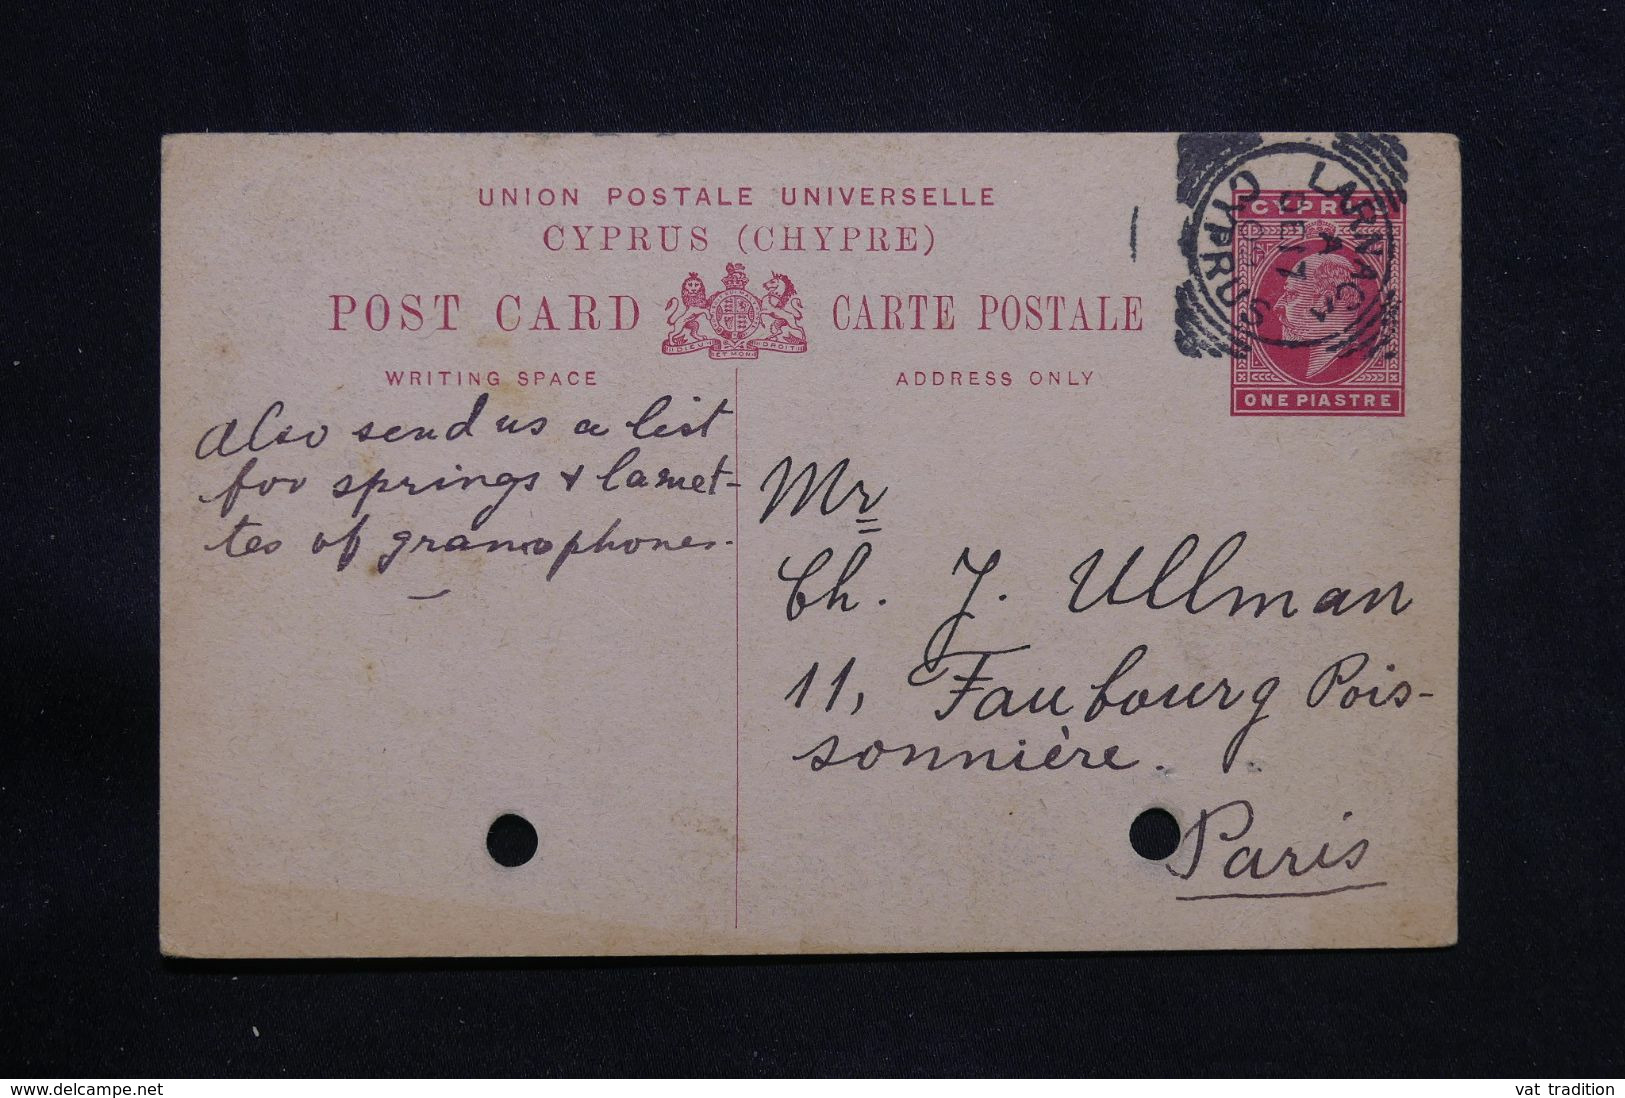 UNION POSTALE UNIVERSELLE
CYPRUS (CHYPRE)
POST CARD CARTE POSTALE
DIEU ET MON DROIT
WRITING SPACE
ADDRESS ONLY
CYPRUS
ONE PIASTRE
LARNACA
A
DE 17
CYPRUS
also send us a list
for springs & lamet-
tes of gramophones.
Mr
Ch. J. Ullman
11, Faubourg Pois-
sonnière.
Paris
www.delcampe.net
vat tradition